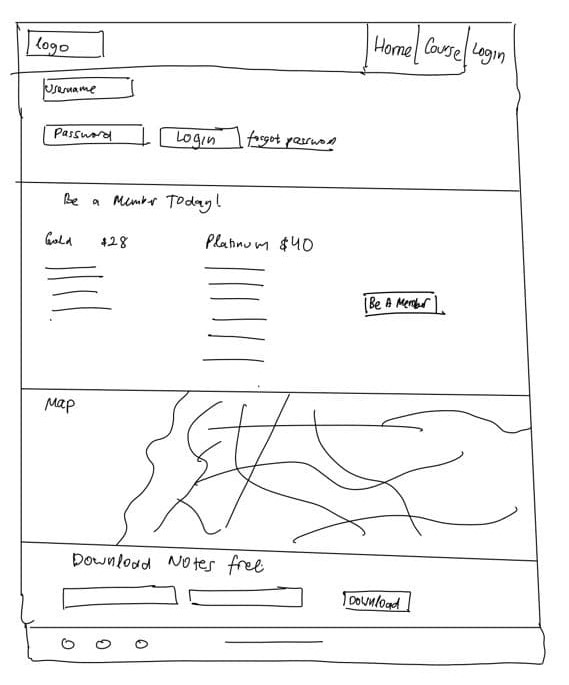 logo
Home Course Login
Username
Password Login forgot password
Be a Member Today!
Gold $28 Platinum $40
Be A Member
Map
Download Notes free
Download